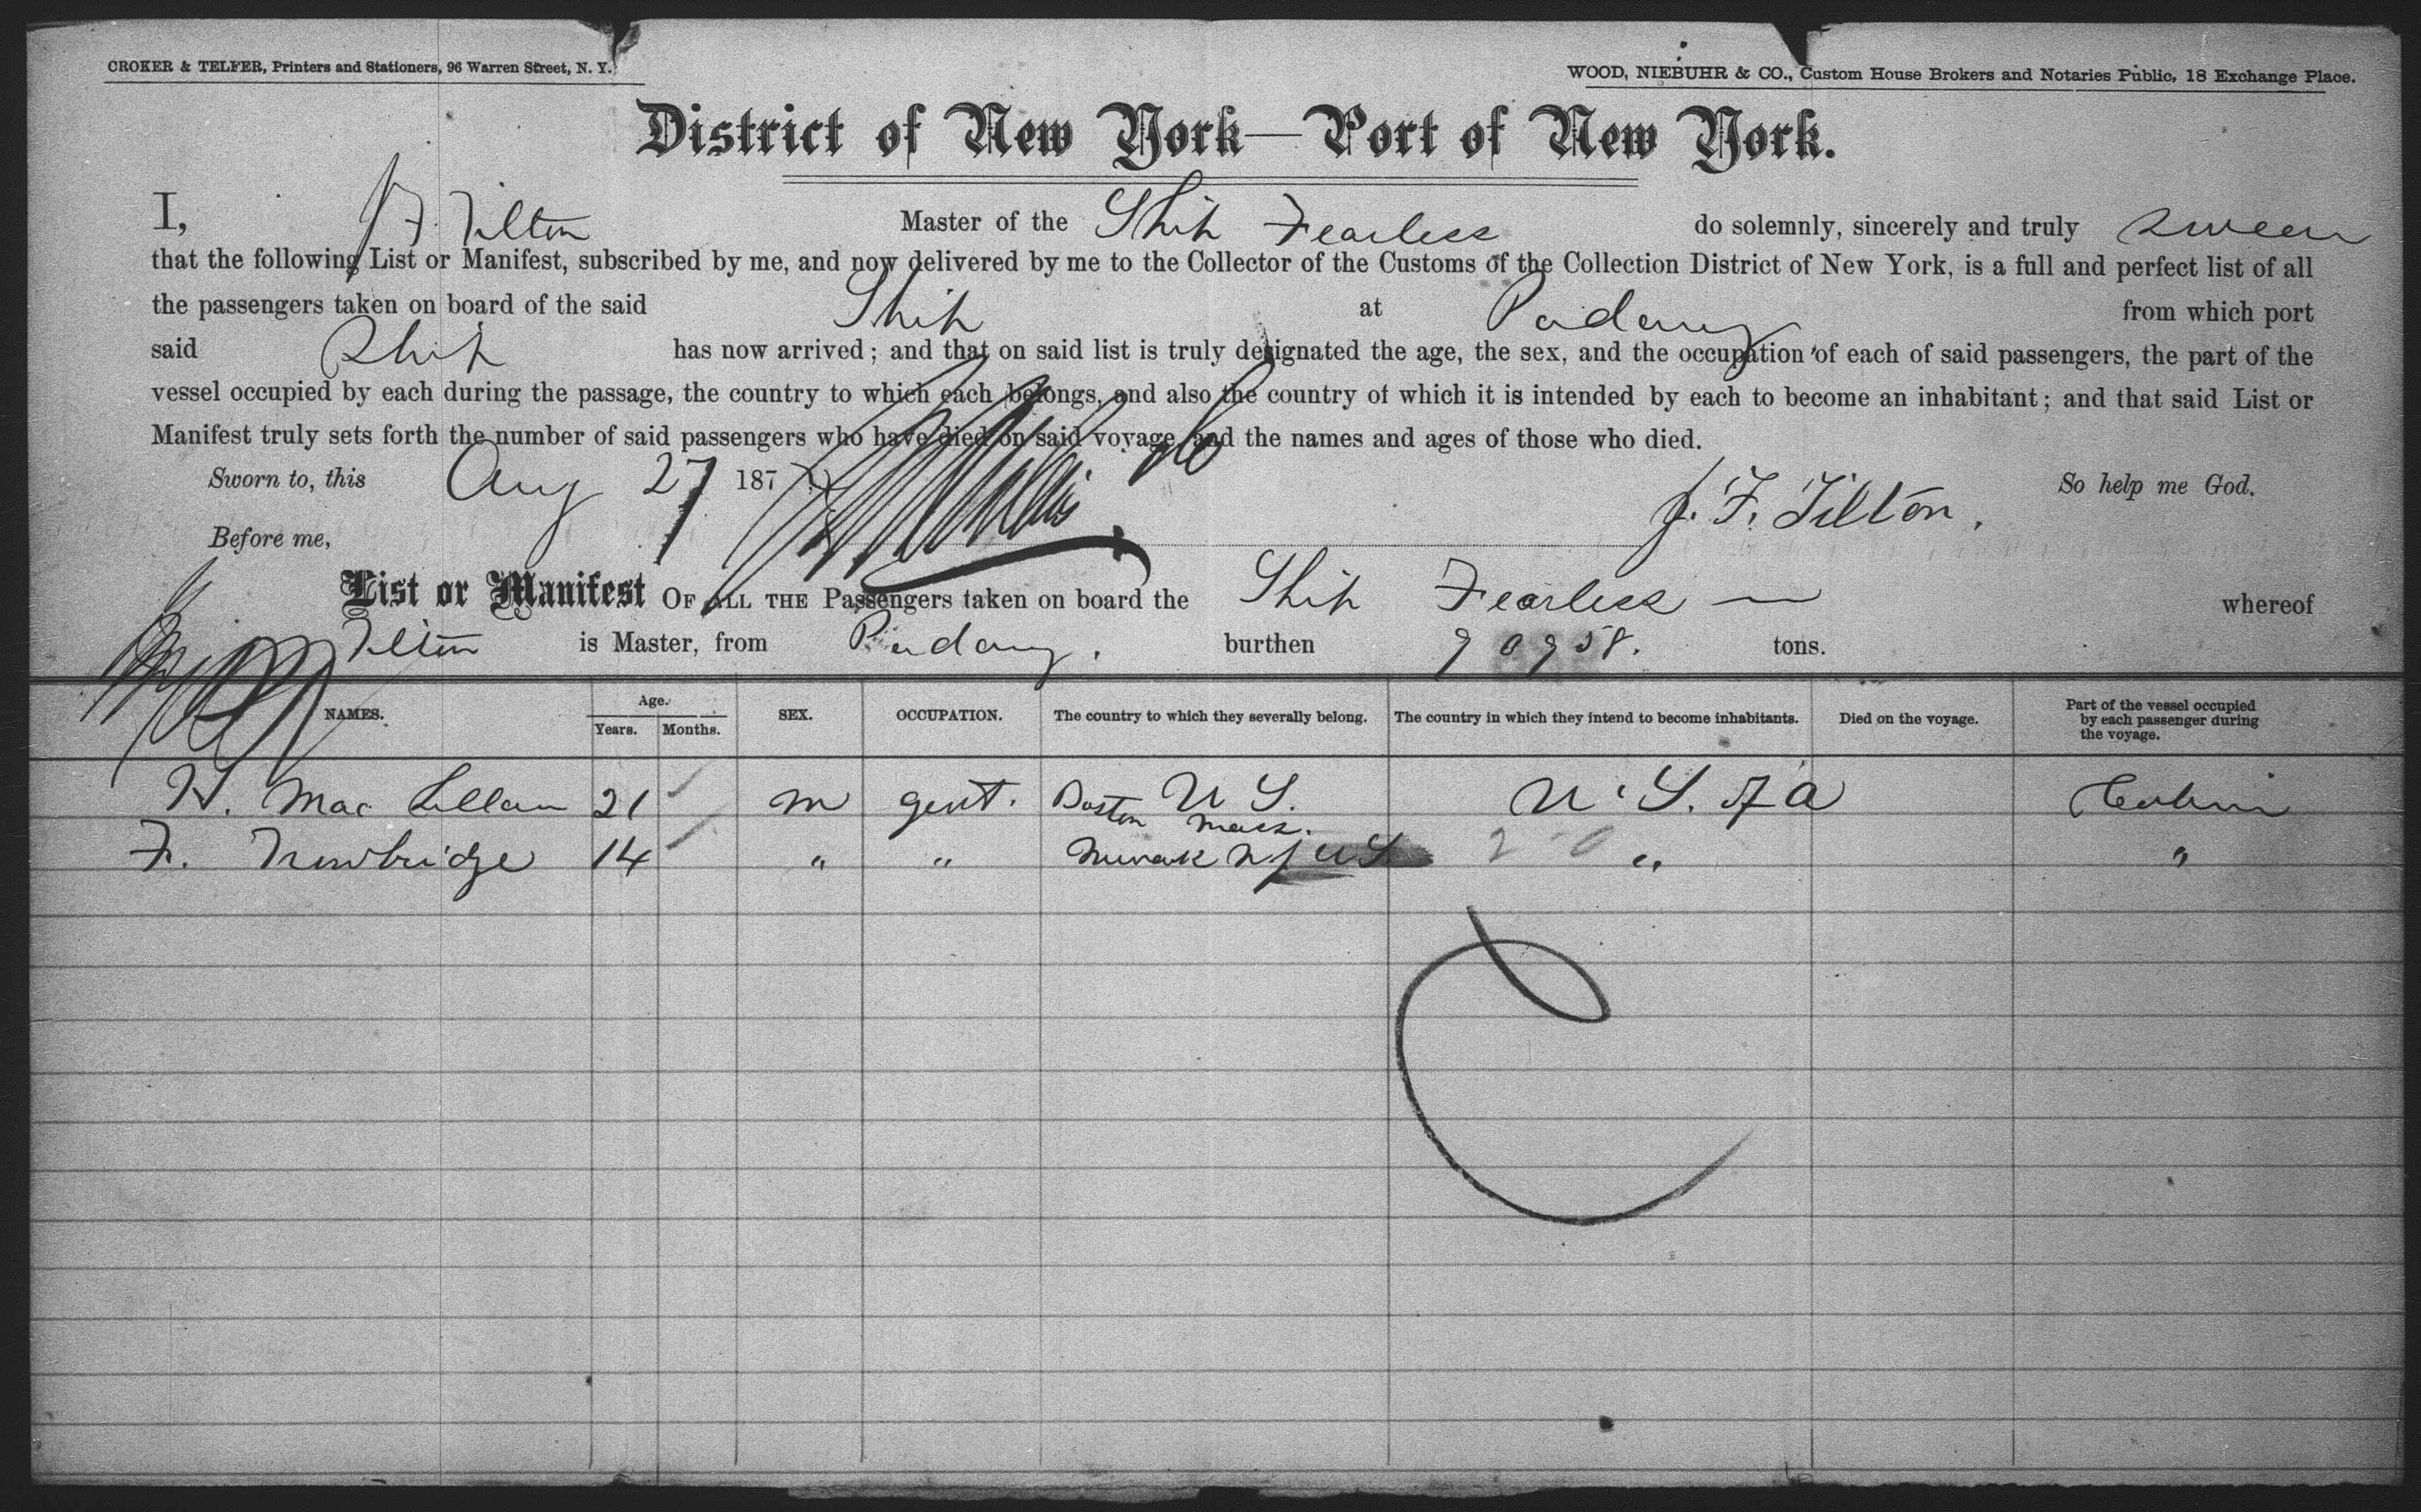 CROKER & TELFER, Printers and Stationers, 96 Warren Street, N. Y.
WOOD, NIEBUHR & CO., Custom House Brokers and Notaries Public, 18 Exchange Place.
District of New York—Port of New York.
I, J. F. Tilton Master of the Ship Fearless do solemnly, sincerely and truly swear
that the following List or Manifest, subscribed by me, and now delivered by me to the Collector of the Customs of the Collection District of New York, is a full and perfect list of all
the passengers taken on board of the said Ship at Padang from which port
said Ship has now arrived; and that on said list is truly designated the age, the sex, and the occupation of each of said passengers, the part of the
vessel occupied by each during the passage, the country to which each belongs, and also the country of which it is intended by each to become an inhabitant; and that said List or
Manifest truly sets forth the number of said passengers who have died on said voyage, and the names and ages of those who died.
Sworn to, this Aug 27 187 J. F. Tilton. So help me God.
Before me,
List or Manifest OF ALL THE Passengers taken on board the Ship Fearless — whereof
Tilton is Master, from Padang. burthen 909 58. tons.
NAMES. Age. Years. Months. SEX. OCCUPATION. The country to which they severally belong. The country in which they intend to become inhabitants. Died on the voyage. Part of the vessel occupied by each passenger during the voyage.
H. Mac 21 m gent. Boston Mass. U S. U. S. of a Cabin
F. Trowbridge 14 " " Newark N J U S " "
2